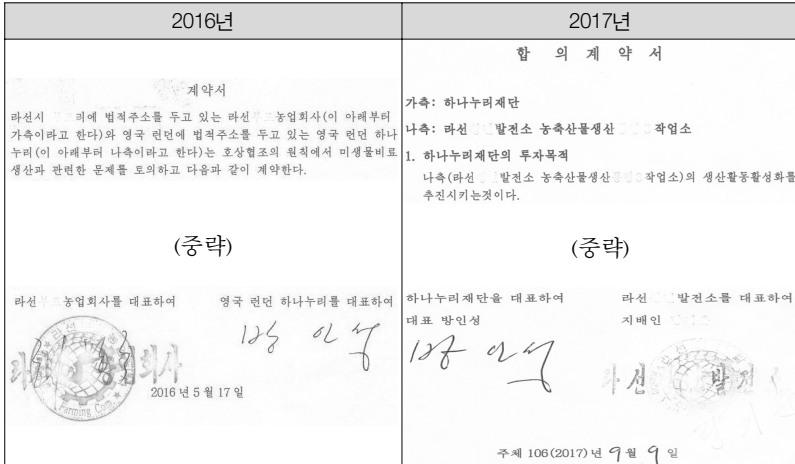 2016년
계약서
라선시 리에 법적주소를 두고 있는 라선 농업회사(이 아래부터
가측이라고 한다)와 영국 런던에 법적주소를 두고 있는 영국 런던 하나
누리(이 아래부터 나측이라고 한다)는 호상협조의 원칙에서 미생물비료
생산과 관련한 문제를 토의하고 다음과 같이 계약한다.
(중략)
라선 농업회사를 대표하여 영국 런던 하나누리를 대표하여
방인성
회사
Farming Com.
2016년 5월 17일
2017년
합 의 계 약 서
가측: 하나누리재단
나측: 라선 발전소 농축산물생산 작업소
1. 하나누리재단의 투자목적
나측(라선 발전소 농축산물생산 작업소)의 생산활동활성화를
추진시키는것이다.
(중략)
하나누리재단을 대표하여 라선 발전소를 대표하여
대표 방인성 지배인
방인성
라선 발전
주체 106(2017)년 9월 9일